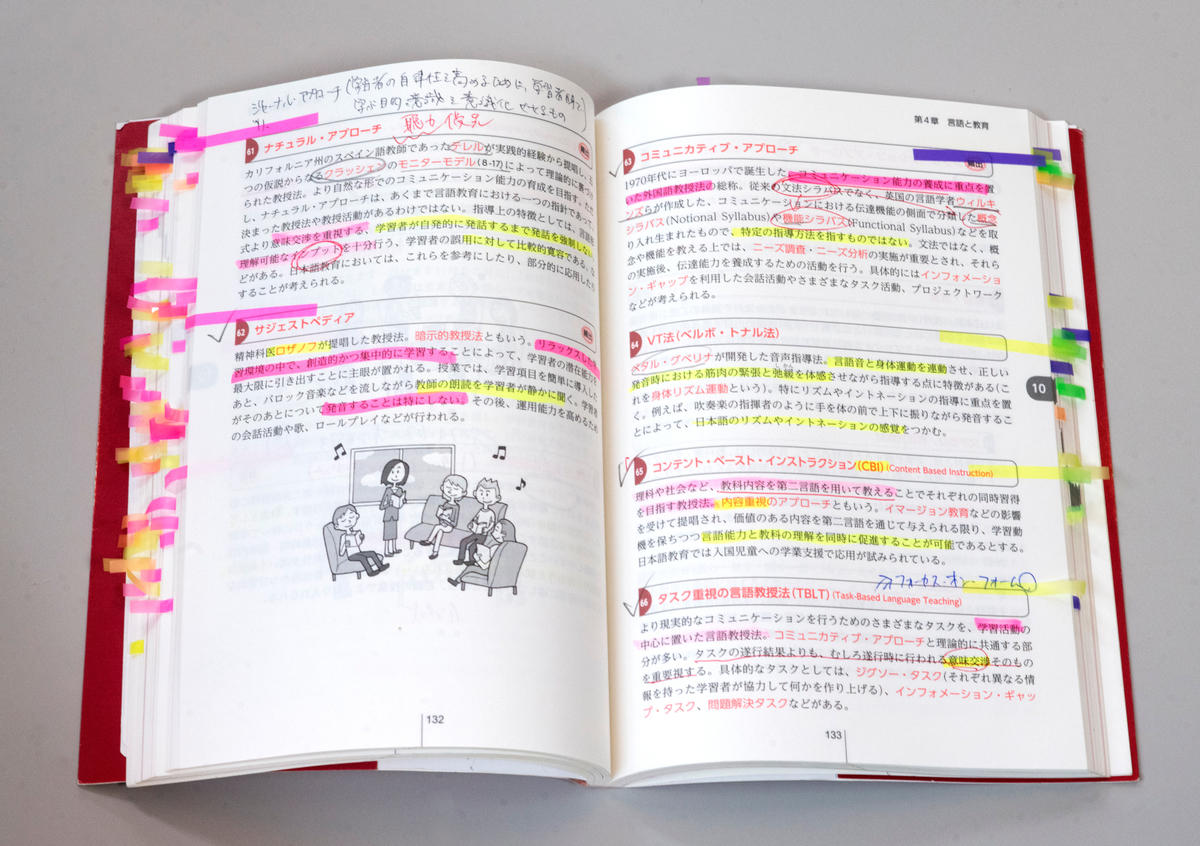 ジャーナル・アプローチ(学習者の自律性を高めるために、学習者自身で
学ぶ目的意識を意識化させるもの)
61 ナチュラル・アプローチ 聴力優先
頻出
カリフォルニア州のスペイン語教師であったテレルが実践的経験から提唱し、
つの仮説からなるクラッシェンのモニターモデル(8-17)によって理論的に裏づけ
られた教授法。より自然な形でのコミュニケーション能力の育成を目指す。ただ
し、ナチュラル・アプローチは、あくまで言語教育における一つの指針であって、
決まった教授法や教授活動があるわけではない。指導上の特徴としては、言語形
式より意味交渉を重視する、学習者が自発的に発話するまで発話を強制しない、
理解可能なインプットを十分行う、学習者の誤用に対して比較的寛容である、な
どがある。日本語教育においては、これらを参考にしたり、部分的に応用したり
することが考えられる。
62 サジェストペディア
頻出
精神科医ロザノフが提唱した教授法。暗示的教授法ともいう。リラックスした学
習環境の中で、創造的かつ集中的に学習することによって、学習者の潜在能力を
最大限に引き出すことに主眼が置かれる。授業では、学習項目を簡単に導入した
あと、バロック音楽などを流しながら教師の朗読を学習者が静かに聞く。学習者
がそのあとについて発音することは特にしない。その後、運用能力を高めるため
の会話活動や歌、ロールプレイなどが行われる。
132
第4章 言語と教育
63 コミュニカティブ・アプローチ
頻出
1970年代にヨーロッパで誕生した、コミュニケーション能力の養成に重点を置
いた外国語教授法の総称。従来の文法シラバスでなく、英国の言語学者ウィルキ
ンズらが作成した、コミュニケーションにおける伝達機能の側面で分類した概念
シラバス(Notional Syllabus)や機能シラバス(Functional Syllabus)などを取
り入れ生まれたもので、特定の指導方法を指すものではない。文法ではなく、概
念や機能を教える上では、ニーズ調査・ニーズ分析の実施が重要とされ、それら
の実施後、伝達能力を養成するための活動を行う。具体的にはインフォメーショ
ン・ギャップを利用した会話活動やさまざまなタスク活動、プロジェクトワーク
などが考えられる。
64 VT法(ベルボ・トナル法)
ペタル・グベリナが開発した音声指導法。言語音と身体運動を連動させ、正しい
発音時における筋肉の緊張と弛緩を体感させながら指導する点に特徴がある(こ
れを身体リズム運動という)。特にリズムやイントネーションの指導に重点を置
く。例えば、吹奏楽の指揮者のように手を体の前で上下に振りながら発音するこ
とによって、日本語のリズムやイントネーションの感覚をつかむ。
10
65 コンテント・ベースト・インストラクション(CBI) (Content Based Instruction)
理科や社会など、教科内容を第二言語を用いて教えることでそれぞれの同時習得
を目指す教授法。内容重視のアプローチともいう。イマージョン教育などの影響
を受けて提唱され、価値のある内容を第二言語を通じて与えられる限り、学習動
機を保ちつつ言語能力と教科の理解を同時に促進することが可能であるとする。
日本語教育では入国児童への学業支援で応用が試みられている。
フォーカス・オン・フォーム
66 タスク重視の言語教授法(TBLT) (Task-Based Language Teaching)
より現実的なコミュニケーションを行うためのさまざまなタスクを、学習活動の
中心に置いた言語教授法。コミュニカティブ・アプローチと理論的に共通する部
分が多い。タスクの遂行結果よりも、むしろ遂行時に行われる意味交渉そのもの
を重要視する。具体的なタスクとしては、ジグソー・タスク(それぞれ異なる情
報を持った学習者が協力して何かを作り上げる)、インフォメーション・ギャッ
プ・タスク、問題解決タスクなどがある。
133